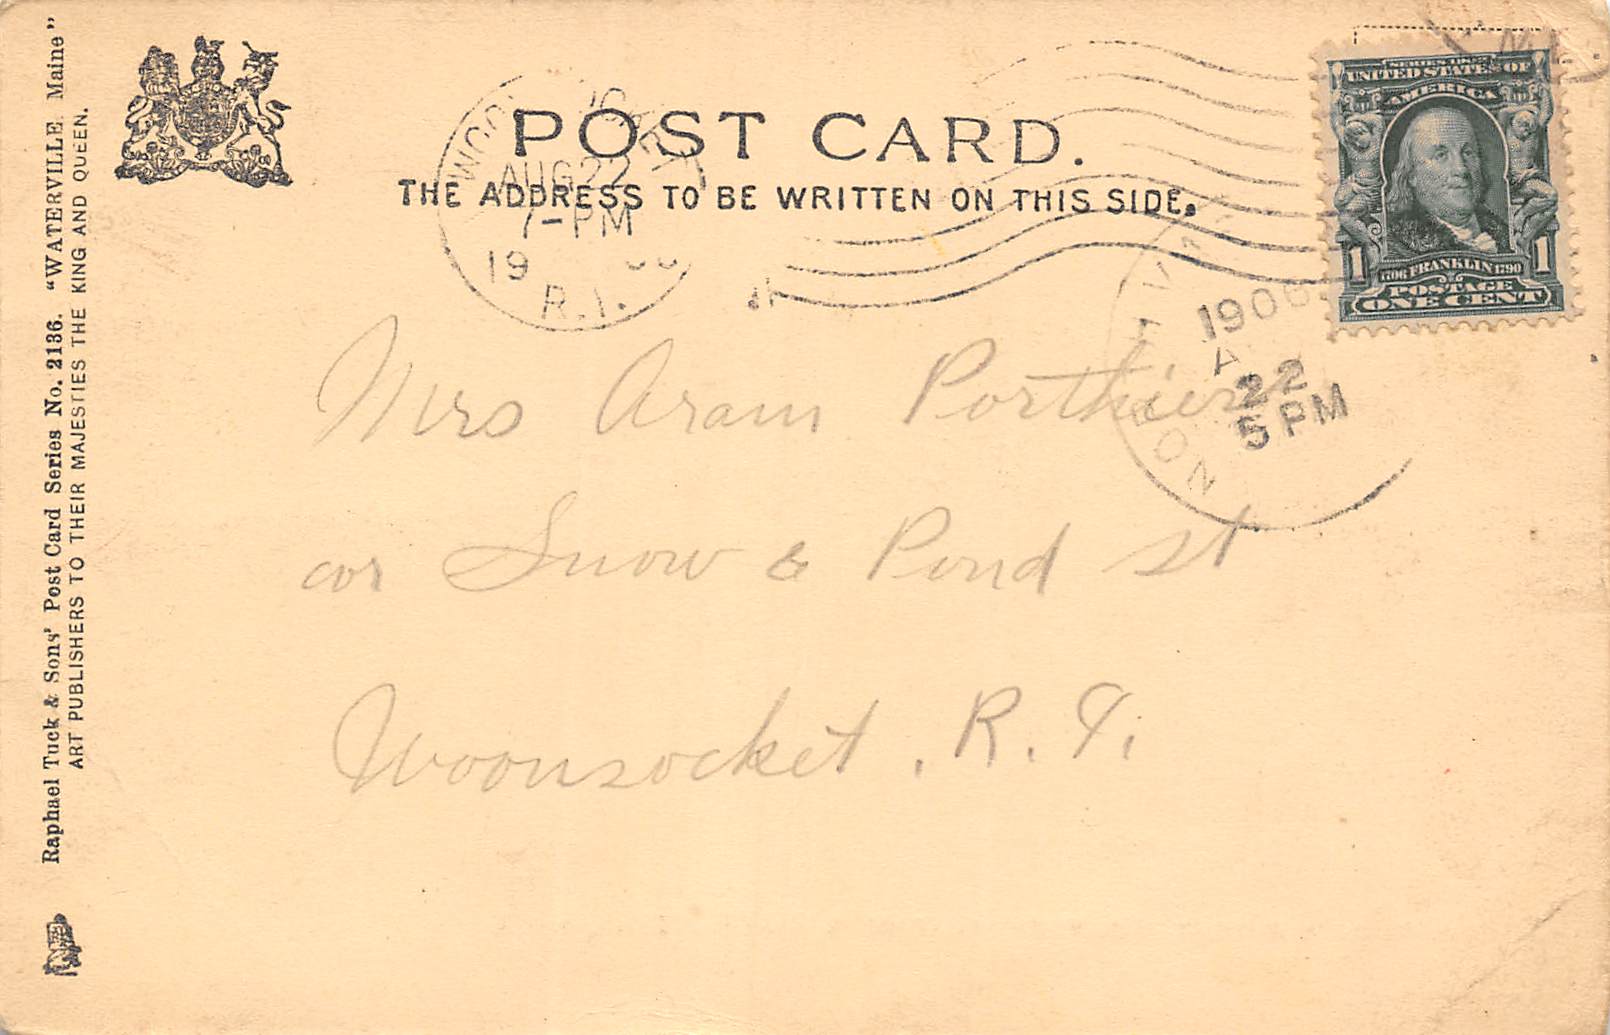 POST CARD.
THE ADDRESS TO BE WRITTEN ON THIS SIDE.
AUG 22
7-PM
19
R.I.
SERIES 1902
UNITED STATES OF
AMERICA
1 1
1706 FRANKLIN 1790
POSTAGE
ONE CENT
1906
22
5 PM
Mrs Aram Porthier
cor Snow & Pond st
Woonsocket, R. I.
Raphael Tuck & Sons' Post Card Series No. 2136. "WATERVILLE, Maine"
ART PUBLISHERS TO THEIR MAJESTIES THE KING AND QUEEN.